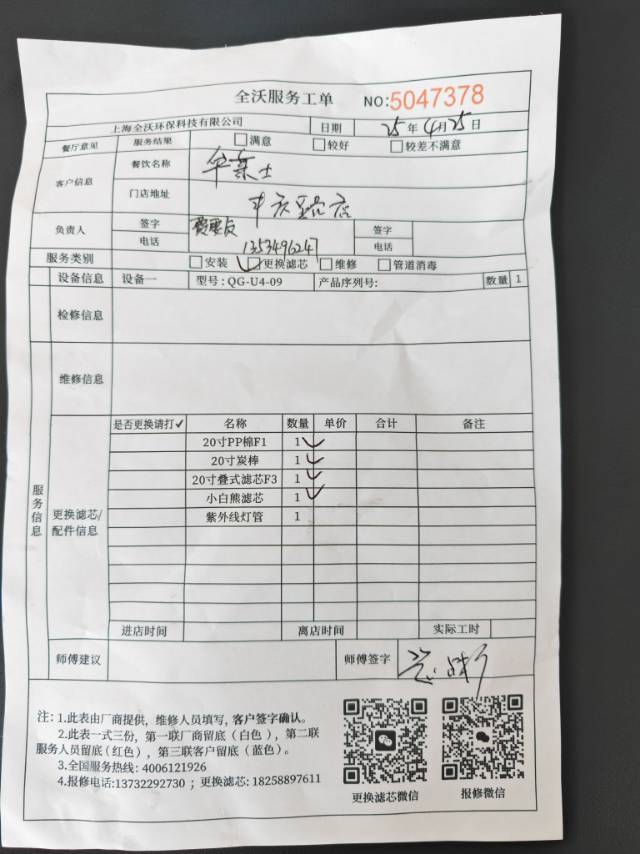 全沃服务工单 NO:5047378
上海全沃环保科技有限公司 日期 25年4月25日
餐厅意见 服务结果 满意 较好 较差不满意
客户信息 餐饮名称 华莱士
门店地址
负责人 签字 签字
电话 1353496247 电话
服务类别 安装 更换滤芯 维修 管道消毒
设备信息 设备一 型号: QG-U4-09 产品序列号: 数量 1
检修信息
维修信息
服务信息
更换滤芯/配件信息
是否更换请打✓ 名称 数量 单价 合计 备注
20寸PP棉F1 1 ✓
20寸炭棒 1 ✓
20寸叠式滤芯F3 1 ✓
小白熊滤芯 1 ✓
紫外线灯管 1
进店时间 离店时间 实际工时
师傅建议 师傅签字
注: 1.此表由厂商提供, 维修人员填写, 客户签字确认。
2.此表一式三份, 第一联厂商留底(白色), 第二联
服务人员留底(红色), 第三联客户留底(蓝色)。
3.全国服务热线: 4006121926
4.报修电话:13732292730 ; 更换滤芯: 18258897611
更换滤芯微信 报修微信